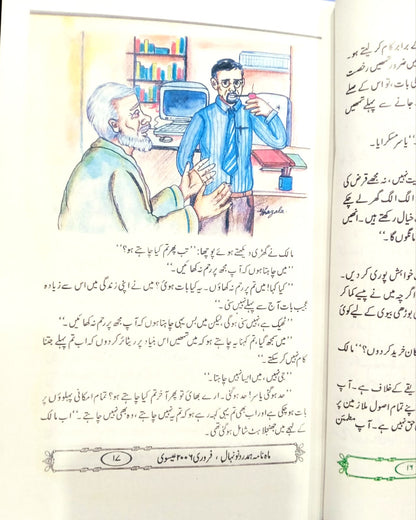 Ghazala
مالک نے گھڑی دیکھتے ہوئے پوچھا: ’’تب پھر تم کیا چاہتے ہو؟‘‘
’’میں چاہتا ہوں کہ آپ مجھ پر رحم نہ کھائیں۔‘‘
’’کیا کہا! میں تم پر رحم نہ کھاؤں۔ یہ کیا بات ہوئی؟ میں نے اپنی زندگی میں اس سے زیادہ
عجیب بات آج سے پہلے نہیں سنی۔‘‘
’’ٹھیک ہے نہیں سنی ہوگی، لیکن میں بس یہی چاہتا ہوں کہ آپ مجھ پر رحم نہ کھائیں۔‘‘
’’میں سمجھ گیا، تم کہنا یہ چاہتے ہو کہ میں تمھیں اس بنیاد پر ریٹائر کر دوں کہ اب تم پہلے جتنا
کام نہیں کر سکتے۔‘‘
’’جی نہیں، میں ایسا نہیں چاہتا۔‘‘
’’حد ہوگئی یاسر! حد ہوگئی۔ ارے بھائی، تو پھر آخر تم کیا چاہتے ہو؟ تمام امکانی پہلوؤں پر
بات ہو چکی ہے اور اب بھی تم یہی کہہ رہے ہو کہ تم یہ نہیں چاہتے، وہ بھی نہیں چاہتے۔‘‘ اب مالک
کے لہجے میں جھنجلاہٹ شامل ہوگئی تھی۔
ماہ نامہ ہمدرد نونہال، فروری ۲۰۰۶ عیسوی
۱۷
کے برابر کام کر لیتے ہو۔
میں ضرور تمھیں رخصت
کی بات، تو اس کے صلے
جانے سے پہلے تمھیں
یاسر مسکرایا۔
یت نہیں، نہ مجھے قرض کی
الگ الگ گھر لے چکے
خیال رکھتے ہیں۔ انھیں
مانگوں گا۔‘‘
خواہش پوری کر دیں۔
اگرچہ میں نے پیسے کما کر
بوڑھی بیوی کے لیے کوئی
کان خرید کر دوں؟‘‘ مالک
یقے کے خلاف ہے۔ آپ
پنے تمام اصول ملازمین پر
حق نہیں ہے۔ آپ مطمئن
۱۶